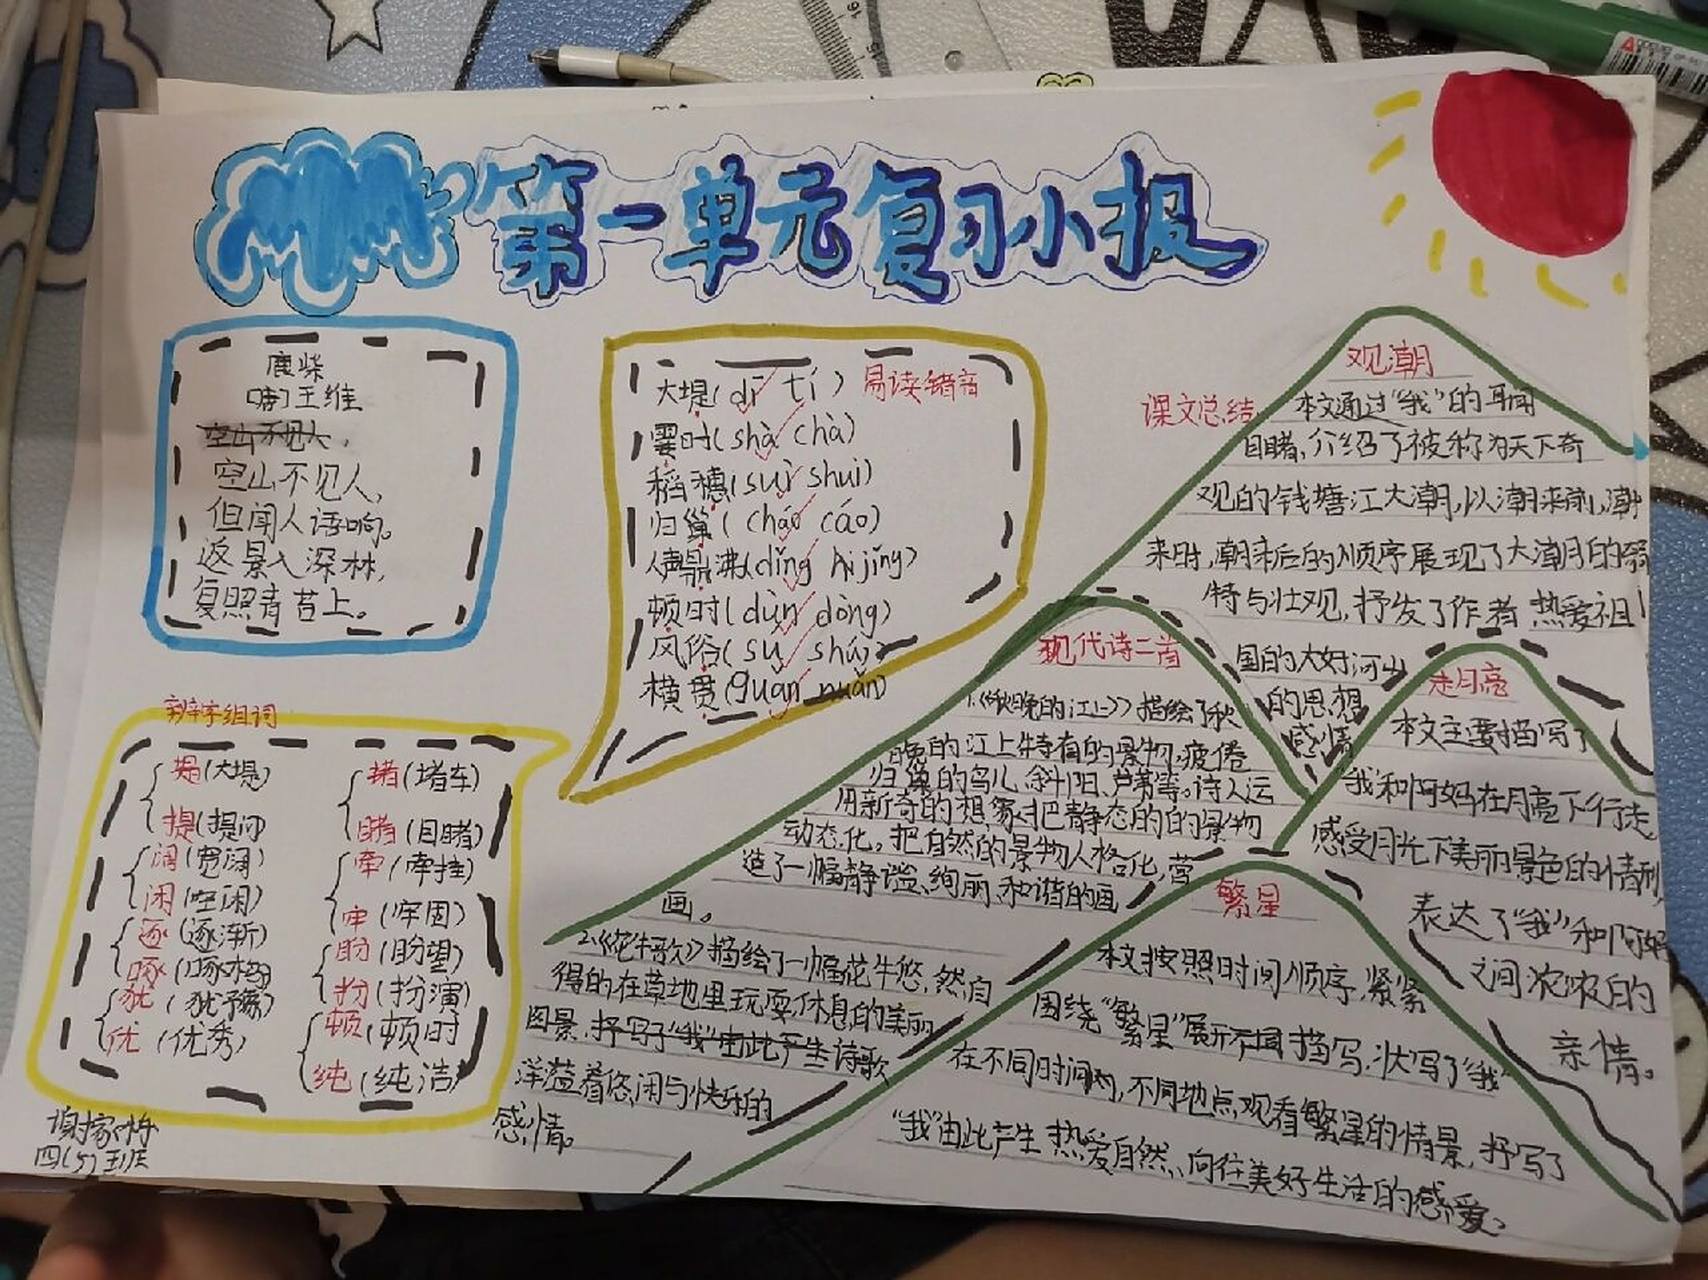 第一单元复习小报
鹿柴
[唐]王维
空山不见人,
空山不见人,
但闻人语响。
返景入深林,
复照青苔上。
大堤(dī tí) 易读错音
霎时(shà chà)
稻穗(suì shuì)
归巢(cháo cáo)
人声鼎沸(dǐng jǐng)
顿时(dùn dòng)
风俗(sú shú)
横贯(guàn nuǎn)
辨字组词
堤(大堤)
提(提问)
阔(宽阔)
闲(空闲)
逐(逐渐)
啄(啄木鸟)
犹(犹豫)
优(优秀)
堵(堵车)
睹(目睹)
牵(牵挂)
牢(牢固)
盼(盼望)
扮(扮演)
顿(顿时)
纯(纯洁)
四(5)班
课文总结
观潮
本文通过“我”的耳闻
目睹,介绍了被称为天下奇
观的钱塘江大潮,以潮来前,潮
来时,潮来后的顺序展现了大潮的奇
特与壮观,抒发了作者热爱祖
国的大好河山
的思想
感情
现代诗二首
1.《秋晚的江上》描绘了秋
晚的江上特有的景物,疲倦
归巢的鸟儿,斜阳、芦苇等。诗人运
用新奇的想象,把静态的的景物
动态化,把自然的景物人格化,营
造了一幅静谧、绚丽、和谐的画
画。
2.《花牛歌》描绘了一幅花牛悠,然自
得的在草地里玩耍,休息的美丽
图景,抒写了“我”由此产生诗歌
洋溢着悠闲与快乐的
感情。
走月亮
本文主要描写了
“我”和阿妈在月亮下行走,
感受月光下美丽景色的情形,
表达了“我”和阿妈
之间浓浓的
亲情。
繁星
本文按照时间顺序,紧紧
围绕“繁星”展开描写,状写了“我”
在不同时间内,不同地点,观看繁星的情景,抒写了
“我”由此产生热爱自然、向往美好生活的感爱。